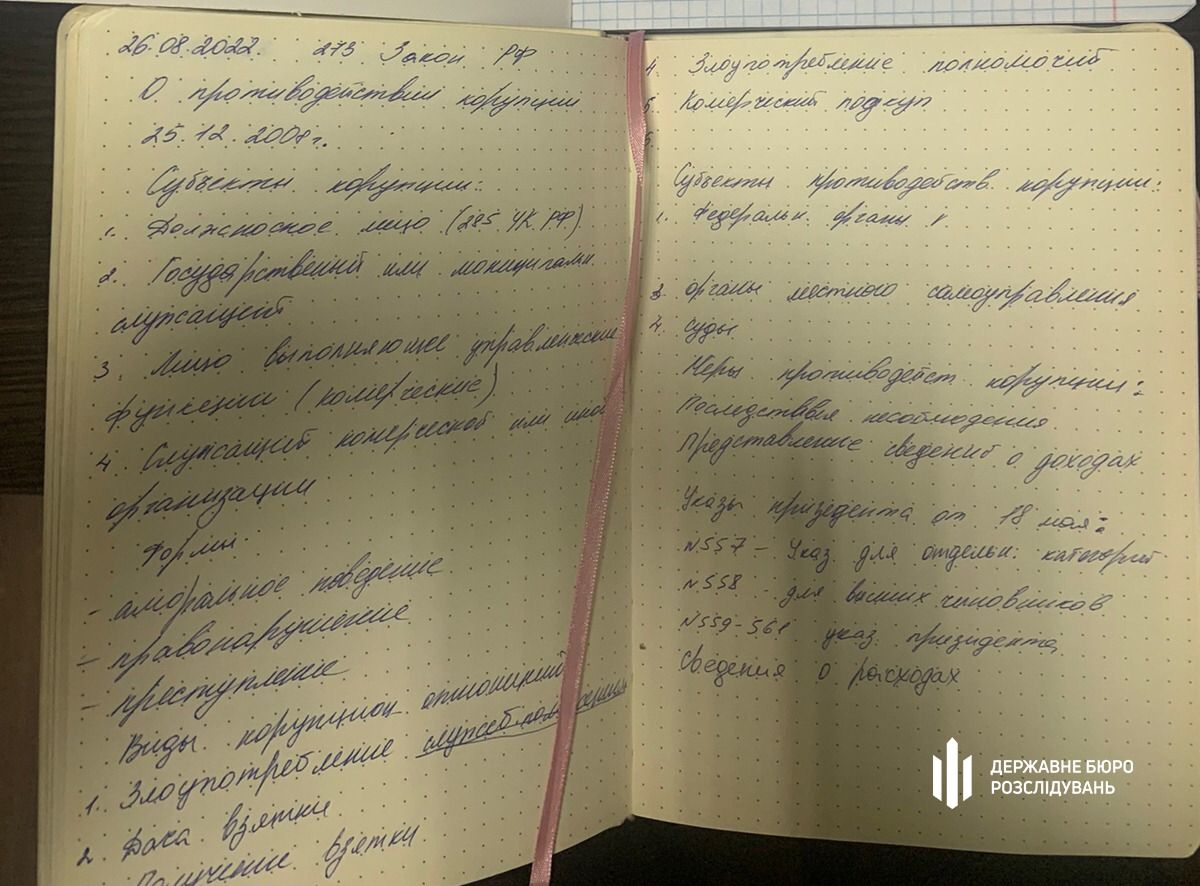 26.08.2022. 273 Закон РФ
О противодействии корупции
25.12.2008г.
Субъекты корупции:
1. Должносное лицо (285 УК РФ)
2. Государственный или мониципальн.
служащий
3. Лицо выполняющее управленческие
функции (комерческие)
4 Служащий комерческой или иной
организации
Формы:
- аморальное поведение
- правонарушение
- преступление
Виды корупцион отношений
1. Злоупотребление служеб.
2. Дача взятки
Получение взятки
4. Злоупотребление полномочий
5. Комерческий подкуп
6.
Субъекты противодейств. корупции:
1. Федеральн. органы
3. органы местного самоуправления
4. суды
Меры противодейст корупции:
Последствия несоблюдения
Представление сведений о доходах
Указы призедента от 18 мая:
№557 - Указ для отдельн. категорий
№558 - для высших чиновников
№559-561 указ призидента
Сведения о расходах
ДЕРЖАВНЕ БЮРО
РОЗСЛІДУВАНЬ